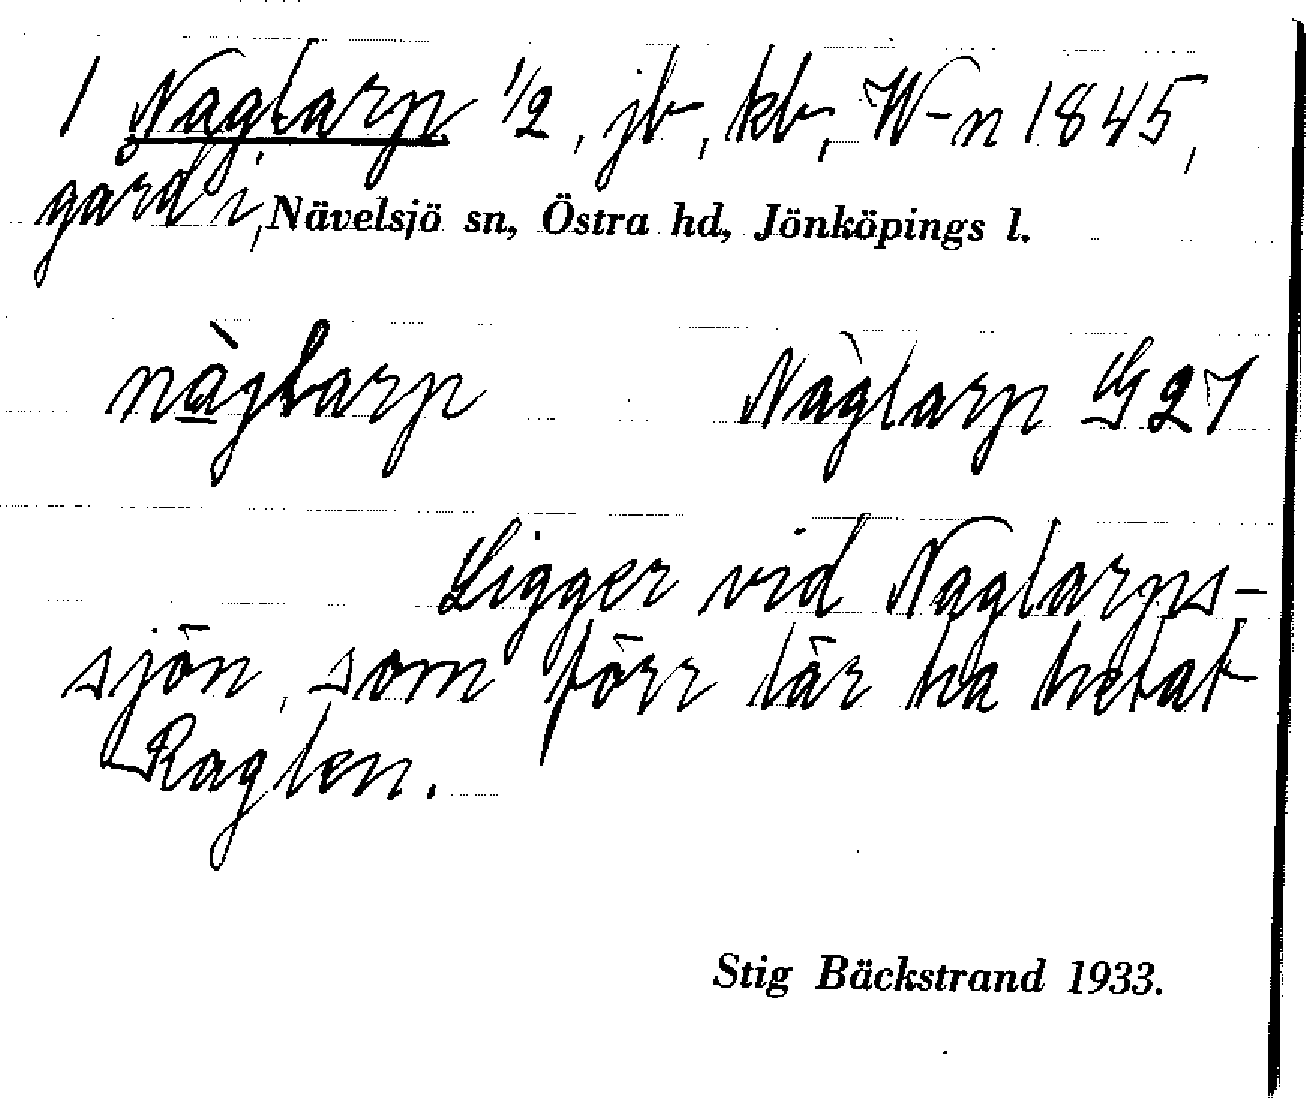 1 Naglarp 1/2, jb, kb, W-n 1845,
gård i, Nävelsjö sn, Östra hd, Jönköpings l.
nàglarp Nàglarp G 27
Ligger vid Naglarps-
sjön, som förr lär ha hetat
Raglen.
Stig Bäckstrand 1933.